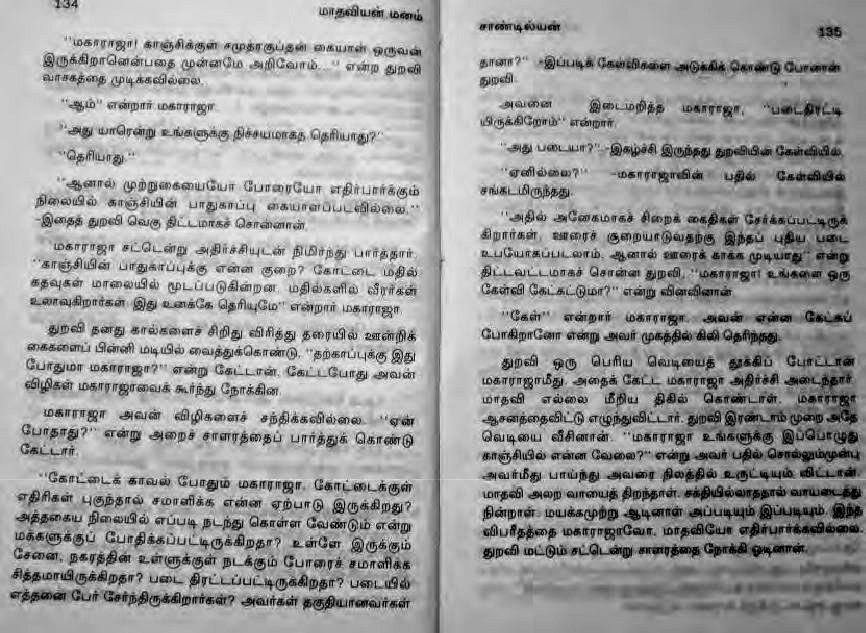 134
மாதவியின் மனம்
"மகாராஜா! காஞ்சிக்குள் சமுத்ரகுப்தன் கையாள் ஒருவன்
இருக்கிறானென்பதை முன்னமே அறிவோம்...." என்ற துறவி
வாசகத்தை முடிக்கவில்லை.
"ஆம்" என்றார் மகாராஜா.
"அது யாரென்று உங்களுக்கு நிச்சயமாகத் தெரியாது?"
"தெரியாது."
"ஆனால் முற்றுகையையோ போரையோ எதிர்பார்க்கும்
நிலையில் காஞ்சியின் பாதுகாப்பு கையாளப்படவில்லை."
-இதைத் துறவி வெகு திட்டமாகச் சொன்னான்.
மகாராஜா சட்டென்று அதிர்ச்சியுடன் நிமிர்ந்து பார்த்தார்.
"காஞ்சியின் பாதுகாப்புக்கு என்ன குறை? கோட்டை மதில்
கதவுகள் மாலையில் மூடப்படுகின்றன. மதில்களில் வீரர்கள்
உலாவுகிறார்கள் இது உனக்கே தெரியுமே" என்றார் மகாராஜா.
துறவி தனது கால்களைச் சிறிது விரித்து தரையில் ஊன்றிக்
கைகளைப் பின்னி மடியில் வைத்துக்கொண்டு, "தற்காப்புக்கு இது
போதுமா மகாராஜா?" என்று கேட்டான். கேட்டபோது அவன்
விழிகள் மகாராஜாவைக் கூர்ந்து நோக்கின.
மகாராஜா அவன் விழிகளைச் சந்திக்கவில்லை. "ஏன்
போதாது?" என்று அறைச் சாளரத்தைப் பார்த்துக் கொண்டு
கேட்டார்.
"கோட்டைக் காவல் போதும் மகாராஜா. கோட்டைக்குள்
எதிரிகள் புகுந்தால் சமாளிக்க என்ன ஏற்பாடு இருக்கிறது?
அத்தகைய நிலையில் எப்படி நடந்து கொள்ள வேண்டும் என்று
மக்களுக்குப் போதிக்கப்பட்டிருக்கிறதா? உள்ளே இருக்கும்
சேனை, நகரத்தின் உள்ளுக்குள் நடக்கும் போரைச் சமாளிக்க
சித்தமாயிருக்கிறதா? படை திரட்டப்பட்டிருக்கிறதா? படையில்
எத்தனை பேர் சேர்ந்திருக்கிறார்கள்? அவர்கள் தகுதியானவர்கள்
சாண்டில்யன்
135
தானா?" -இப்படிக் கேள்விகளை அடுக்கிக் கொண்டு போனான்
துறவி.
அவனை இடைமறித்த மகாராஜா, "படைதிரட்டி
யிருக்கிறோம்" என்றார்.
"அது படையா?" -இகழ்ச்சி இருந்தது துறவியின் கேள்வியில்.
"ஏனில்லை?" -மகாராஜாவின் பதில் கேள்வியில்
சங்கடமிருந்தது.
"அதில் அனேகமாகச் சிறைக் கைதிகள் சேர்க்கப்பட்டிருக்
கிறார்கள், ஊரைச் சூறையாடுவதற்கு இந்தப் புதிய படை
உபயோகப்படலாம். ஆனால் ஊரைக் காக்க முடியாது" என்று
திட்டவட்டமாகச் சொன்ன துறவி, "மகாராஜா! உங்களை ஒரு
கேள்வி கேட்கட்டுமா?" என்று வினவினான்
"கேள்" என்றார் மகாராஜா. அவன் என்ன கேட்கப்
போகிறானோ என்று அவர் முகத்தில் கிலி தெரிந்தது.
துறவி ஒரு பெரிய வெடியைத் தூக்கிப் போட்டான்
மகாராஜாமீது. அதைக் கேட்ட மகாராஜா அதிர்ச்சி அடைந்தார்.
மாதவி எல்லை மீறிய திகில் கொண்டாள். மகாராஜா
ஆசனத்தைவிட்டு எழுந்துவிட்டார். துறவி இரண்டாம் முறை அதே
வெடியை வீசினான். "மகாராஜா உங்களுக்கு இப்பொழுது
காஞ்சியில் என்ன வேலை?" என்று அவர் பதில் சொல்லும்முன்பு
அவர்மீது பாய்ந்து அவரை நிலத்தில் உருட்டியும் விட்டான்
மாதவி அலற வாயைத் திறந்தாள். சக்தியில்லாததால் வாயடைத்து
நின்றாள். மயக்கமுற்று ஆடினாள் அப்படியும் இப்படியும். இந்த
விபரீதத்தை மகாராஜாவோ, மாதவியோ எதிர்பார்க்கவில்லை.
துறவி மட்டும் சட்டென்று சாளரத்தை நோக்கி ஓடினான்.